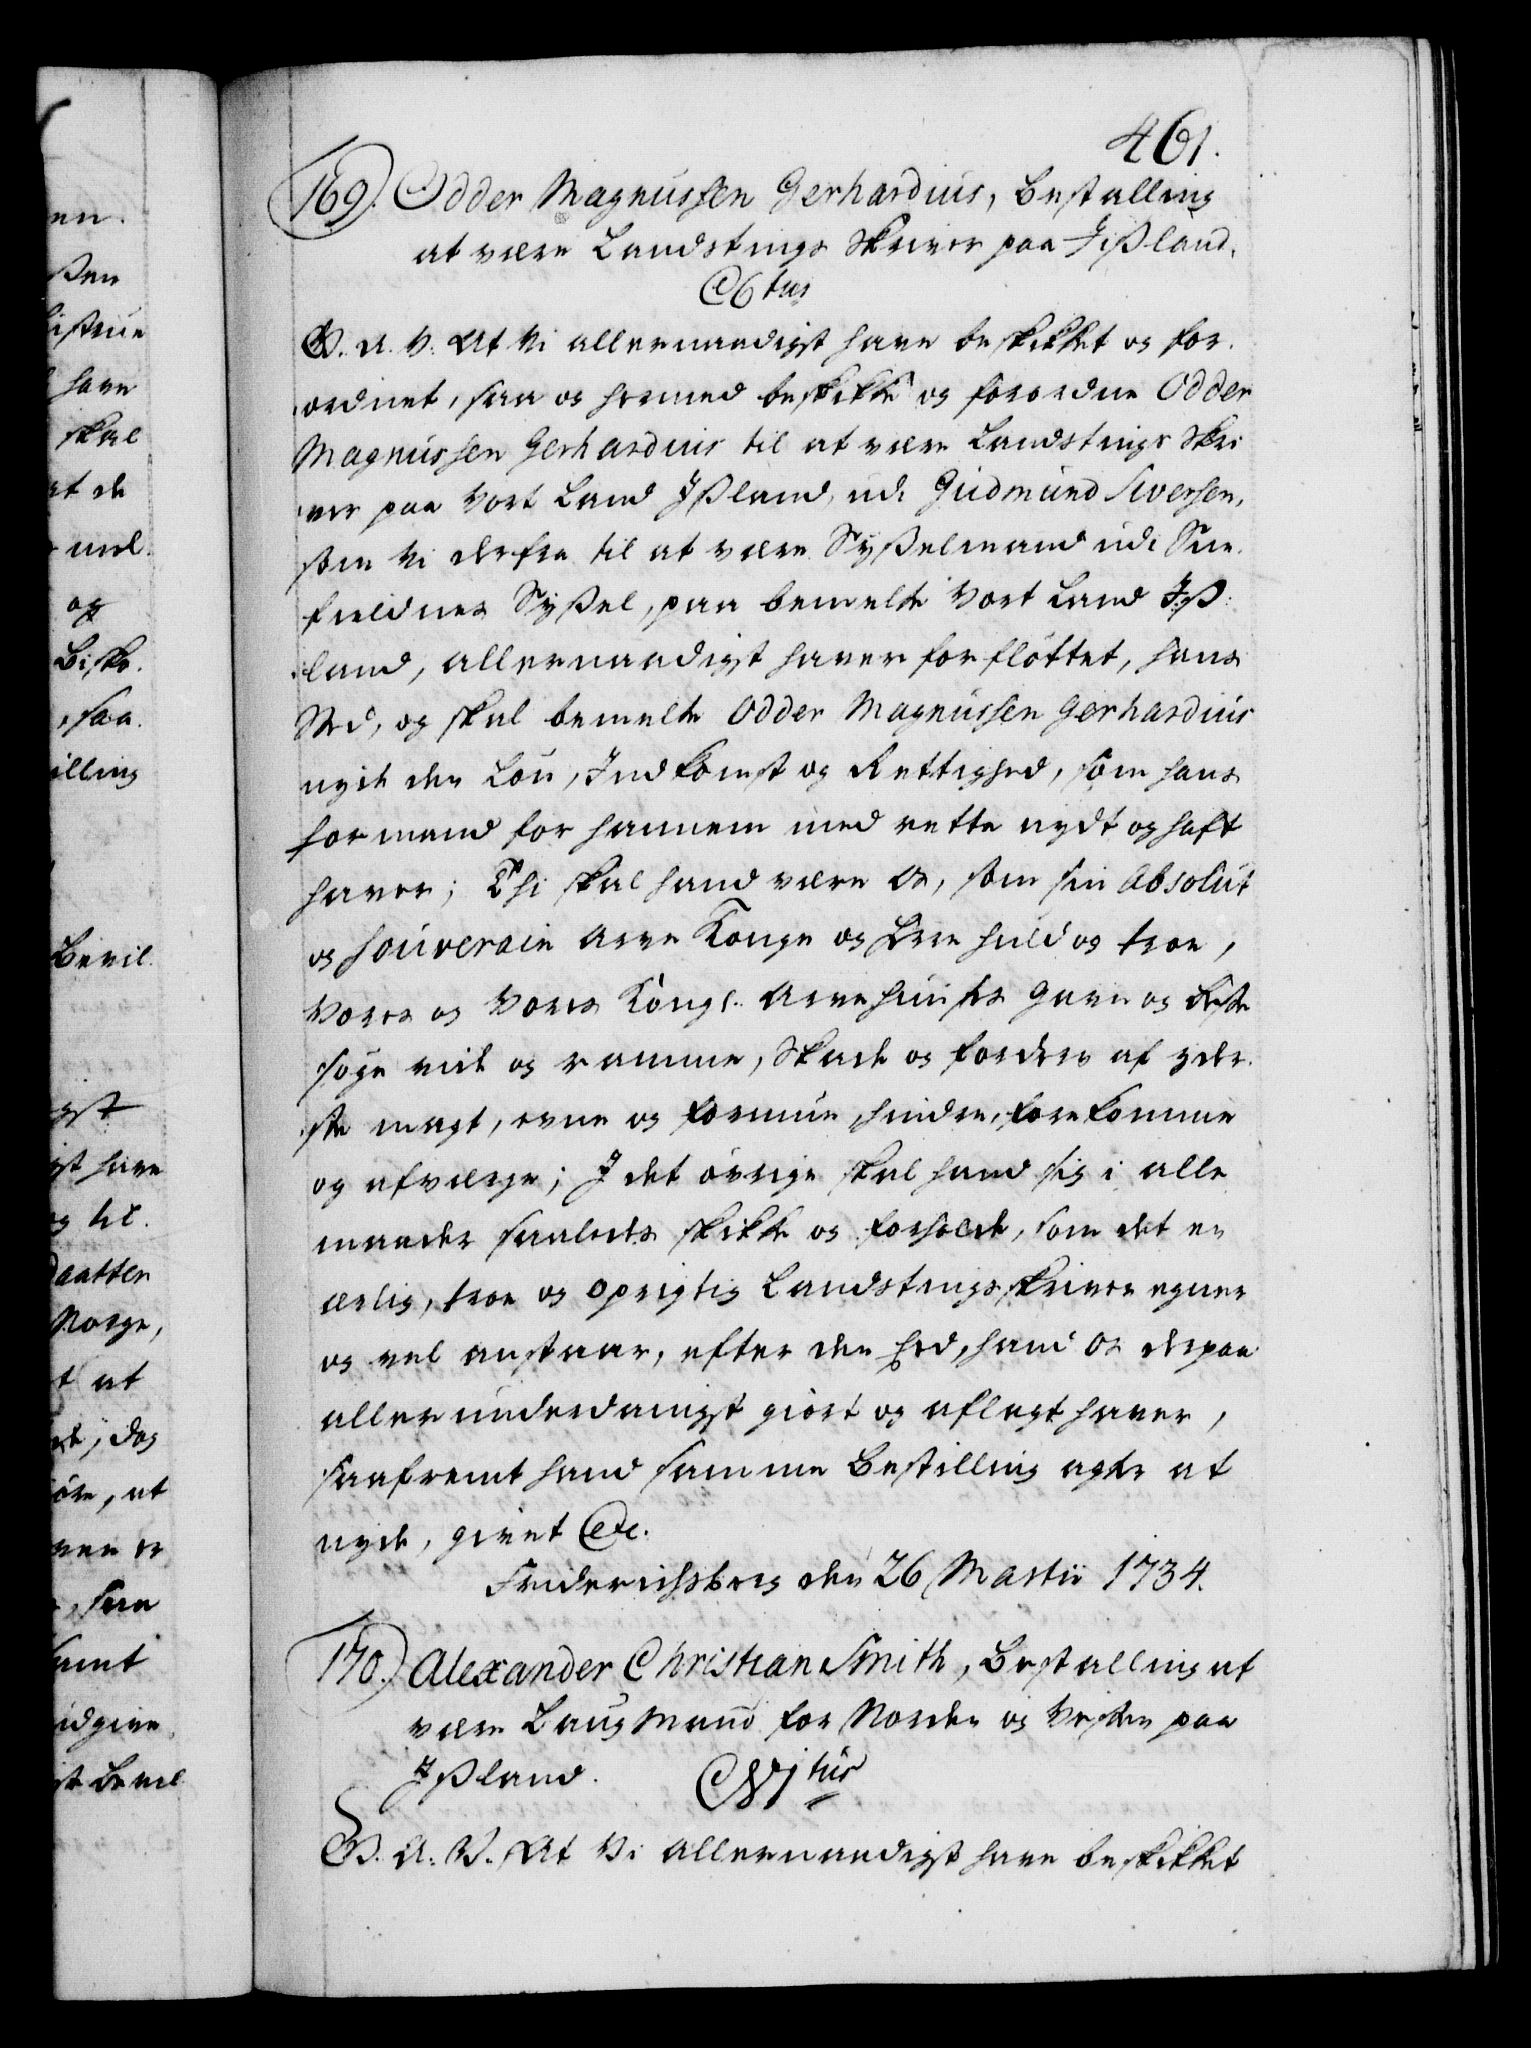 461.
169. Odder Magnussen Gerhardius, Bestalling
at være Landstings Skriver paa Jißland.
C6tus
G. A. V. At Vi allernaadigst have beskikket og for-
ordnet, saa og hermed beskikke og forordne Odder
Magnussen Gerhardius til at være Landstings Skri
ver paa Vort Land Jßland, udi Gudmund Sversen,
som Vi derfra til at være Sysselmand udi Sne-
fieldnes Syssel, paa bemelte Vort Land Jß-
land, allernaadigst haver forfløttet, hans
Sted, og skal bemelte Odder Magnussen Gerhardius
nyde den Løn, Indkomst og Rettighed, som hans
formand for hannem med rette nydt og haft
haver; Thi skal hand være Os, som sin Absolut
og Souverain Arve Konge og Herre huld og troe,
Vores og Vores Kongl. Arve Huuses Gavn og beste
søge vide og ramme, Skade og fordærv af yder-
ste magt, evne og formue, hindre, forekomme
og afværge; J det øvrige skal hand sig i alle
maader saaledes skikke og forholde, som det en
ærlig, troe og oprigtig Landstingsskriver egner
og vel anstaar, efter den Eed, hand Os derpaa
allerunderdanigst giort og aflagt haver,
saafremt hand samme Bestilling agter at
nyde, givet Etc.
Friderichsberg den 26 Martii 1734.
170. Alexander Christian Smith, Bestalling at
være Laugmand for Norden og Vesten paa
Jßland.
G. A. V. At Vi allernaadigst have beskikket
en.
ßen
have
skal
at de
og
Bisko-
saa
illing
Bevil
gst
gst have
og til
Daatter
Norge,
t at
dog
øre, at
saa
samt
udgive